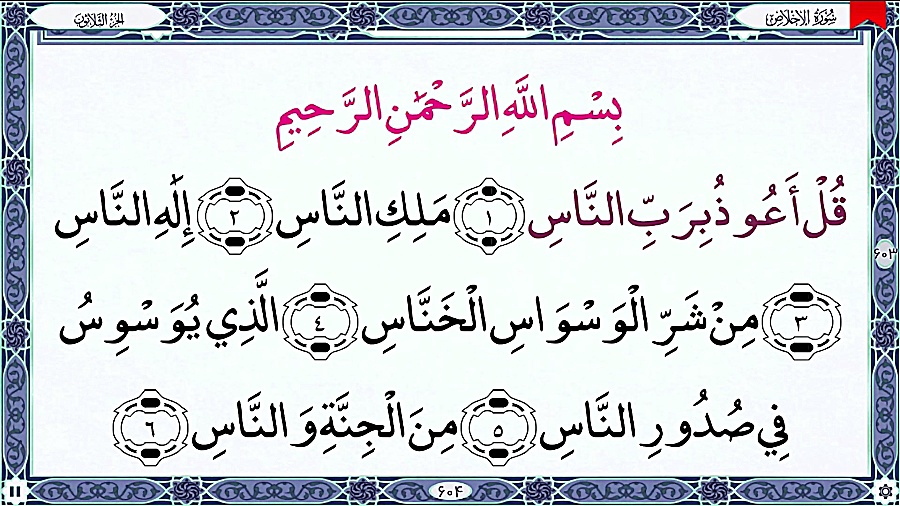 سُورَةُ الإِخْلَاصِ
الجُزْءُ الثَّلَاثُونَ
بِسْمِ اللَّهِ الرَّحْمَٰنِ الرَّحِيمِ
قُلْ أَعُوذُ بِرَبِّ النَّاسِ ١ مَلِكِ النَّاسِ ٢ إِلَٰهِ النَّاسِ
٣ مِنْ شَرِّ الْوَسْوَاسِ الْخَنَّاسِ ٤ الَّذِي يُوَسْوِسُ
فِي صُدُورِ النَّاسِ ٥ مِنَ الْجِنَّةِ وَالنَّاسِ ٦
٦٠٣
٦٠٤